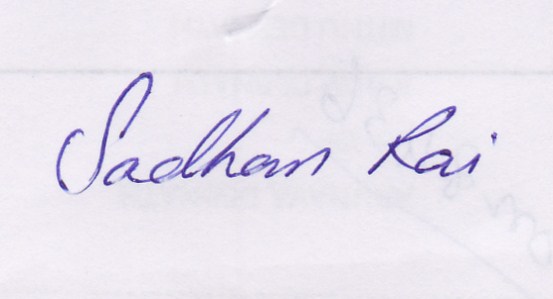 Sadhan Rai